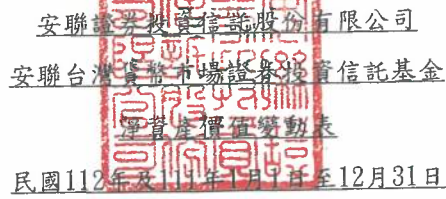 安聯證券投資信託股份有限公司
安聯台灣貨幣市場證券投資信託基金
淨資產價值變動表
民國112年及111年1月1日至12月31日